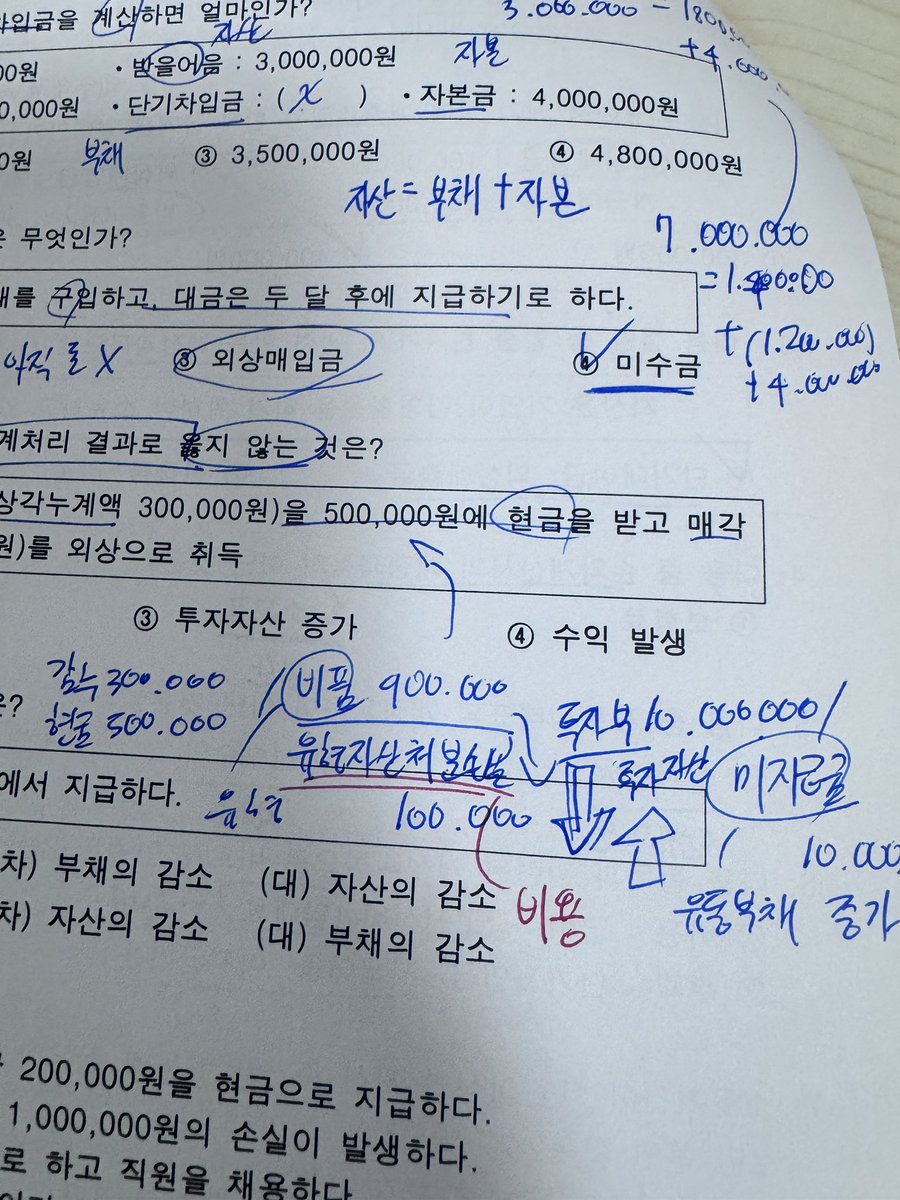 차입금을 계산하면 얼마인가?
3.000.000 - 1800.00
+4.000
자산
00원 · 받을어음 : 3,000,000원 자본
0,000원 · 단기차입금 : ( X ) · 자본금 : 4,000,000원
0원 부채 ③ 3,500,000원 ④ 4,800,000원
자산 = 부채 + 자본
7.000.000
은 무엇인가?
를 구입하고, 대금은 두 달 후에 지급하기로 하다.
+(1.200.000)
+4.000.000
아직 X ③ 외상매입금 ④ 미수금
계처리 결과로 옳지 않는 것은?
상각누계액 300,000원)을 500,000원에 현금을 받고 매각
원)를 외상으로 취득
③ 투자자산 증가 ④ 수익 발생
감누 300.000 / 비품 900.000
현금 500.000 유형자산처분손실 100.000
투자부 10.000000 / 미지급금 10.000
투자자산
유형
에서 지급하다.
차) 부채의 감소 (대) 자산의 감소
차) 자산의 감소 (대) 부채의 감소
비용
유동부채 증가
200,000원을 현금으로 지급하다.
1,000,000원의 손실이 발생하다.
로 하고 직원을 채용하다